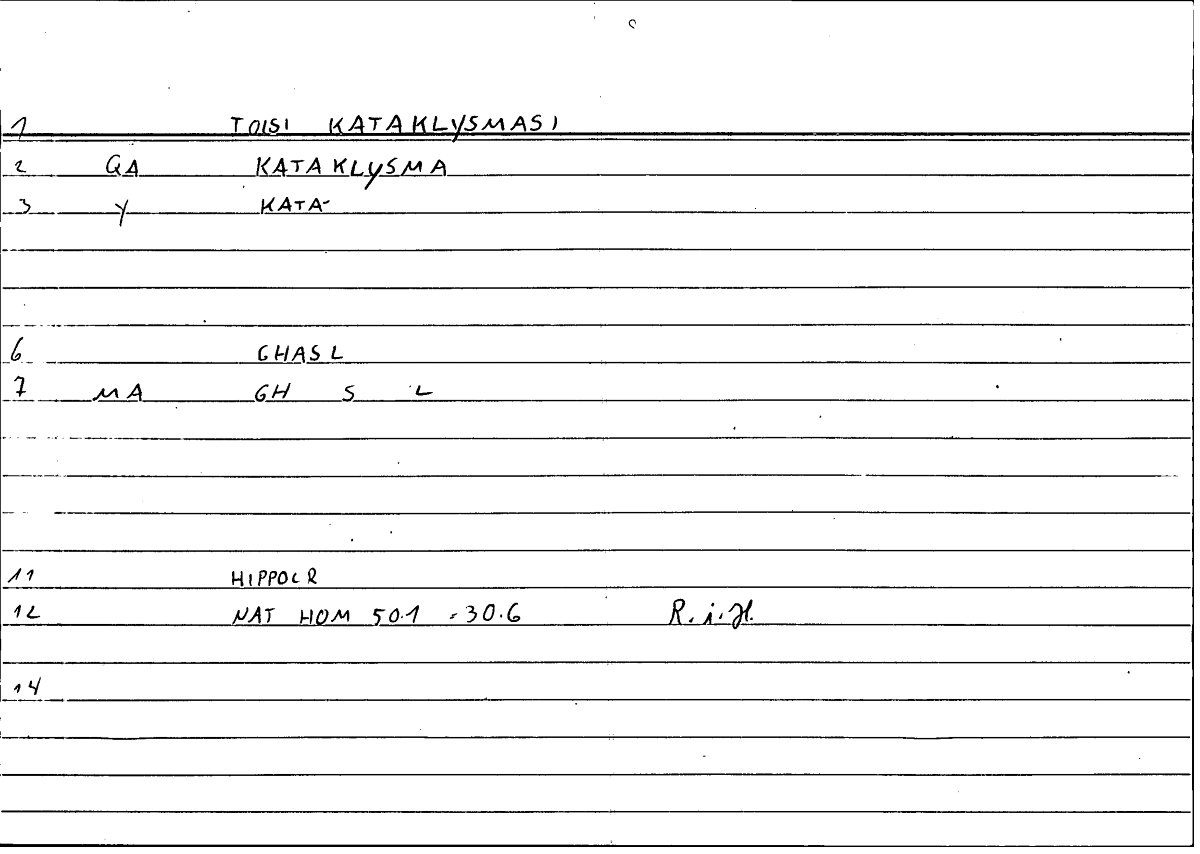 1 TOISI KATAKLYSMASI
2 GA KATAKLYSMA
3 Y KATA-
6 GHASL
7 MA GH S L
11 HIPPOCR
12 NAT HOM 50.1 -30.6 R.i.H.
14